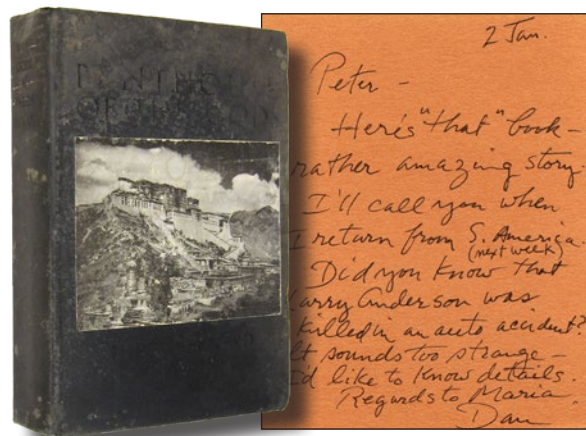 PENTHOUSE
OF THE GODS
2 Jan.
Peter -
Here's "that" book -
rather amazing story.
I'll call you when
I return from S. America
(next week)
Did you know that
Larry Anderson was
killed in an auto accident?
It sounds too strange -
I'd like to know details.
Regards to Maria
Dan